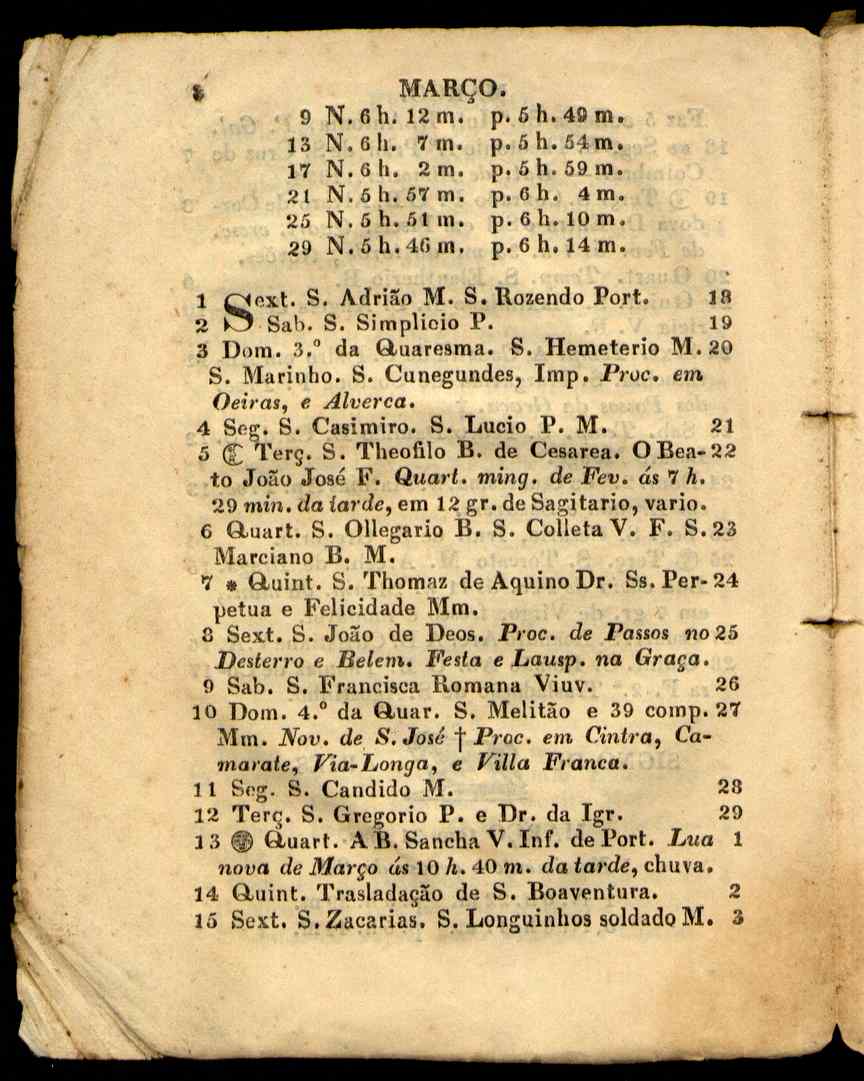 8
MARÇO.
9 N. 6 h. 12 m. p. 5 h. 49 m.
13 N. 6 h. 7 m. p. 5 h. 54 m.
17 N. 6 h. 2 m. p. 5 h. 59 m.
21 N. 5 h. 57 m. p. 6 h. 4 m.
25 N. 5 h. 51 m. p. 6 h. 10 m.
29 N. 5 h. 46 m. p. 6 h. 14 m.
1 Sext. S. Adrião M. S. Rozendo Port. 18
2 Sab. S. Simplicio P. 19
3 Dom. 3.º da Quaresma. S. Hemeterio M. 20
S. Marinho. S. Cunegundes, Imp. Proc. em
Oeiras, e Alverca.
4 Seg. S. Casimiro. S. Lucio P. M. 21
5 ☾ Terç. S. Theofilo B. de Cesarea. O Bea- 22
to João José F. Quart. ming. de Fev. ás 7 h.
29 min. da tarde, em 12 gr. de Sagitario, vario.
6 Quart. S. Ollegario B. S. Colleta V. F. S. 23
Marciano B. M.
7 * Quint. S. Thomaz de Aquino Dr. Ss. Per- 24
petua e Felicidade Mm.
8 Sext. S. João de Deos. Proc. de Passos no 25
Desterro e Belem. Festa e Lausp. na Graça.
9 Sab. S. Francisca Romana Viuv. 26
10 Dom. 4.º da Quar. S. Melitão e 39 comp. 27
Mm. Nov. de S. José † Proc. em Cintra, Ca-
marate, Via-Longa, e Villa Franca.
11 Seg. S. Candido M. 28
12 Terç. S. Gregorio P. e Dr. da Igr. 29
13 Quart. A B. Sancha V. Inf. de Port. Lua 1
nova de Março ás 10 h. 40 m. da tarde, chuva.
14 Quint. Trasladação de S. Boaventura. 2
15 Sext. S. Zacarias. S. Longuinhos soldado M. 3